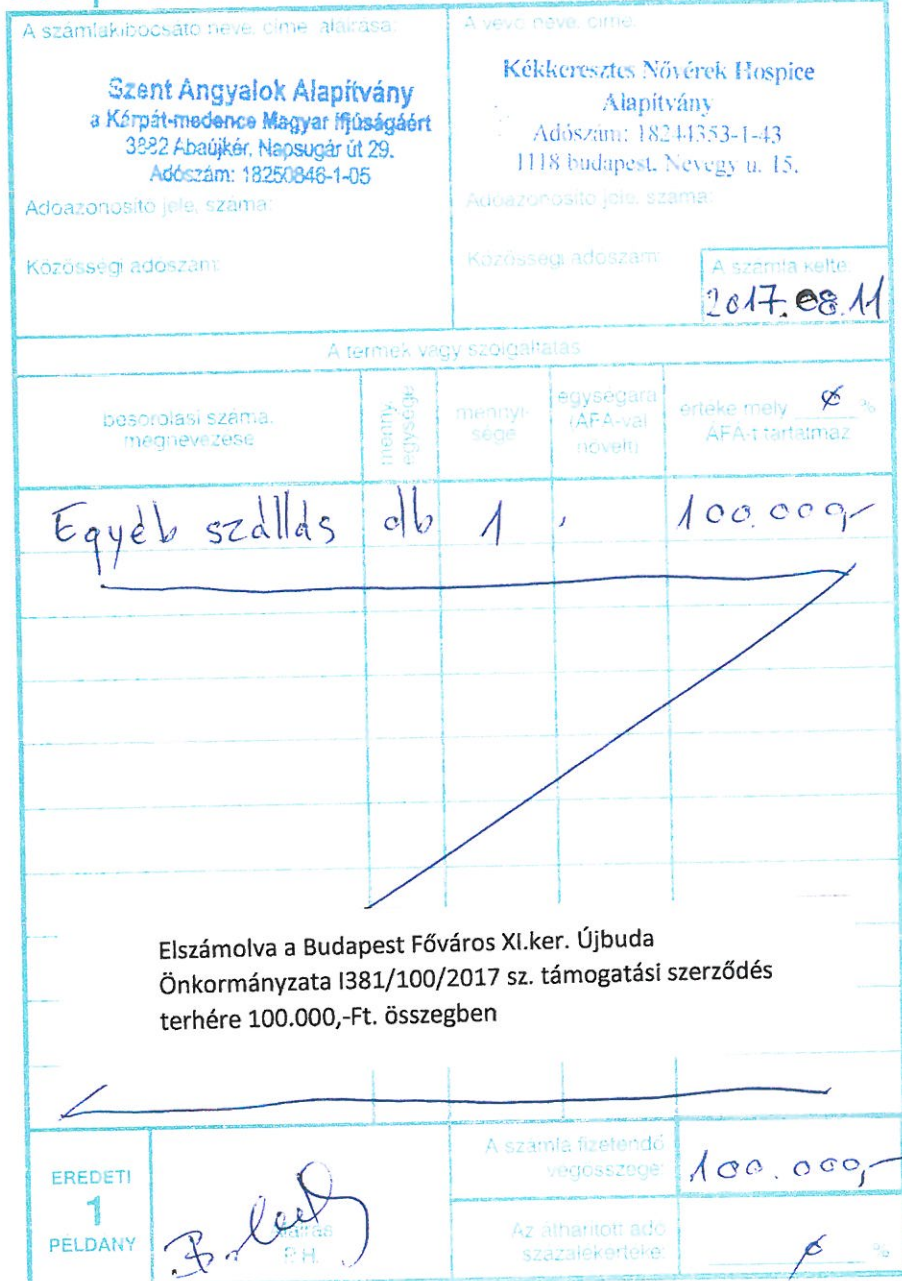 A számlakibocsátó neve, címe, aláírása:
Szent Angyalok Alapítvány
a Kárpát-medence Magyar Ifjúságáért
3882 Abaújkér, Napsugár út 29.
Adószám: 18250846-1-05
Adóazonosító jele, száma:
Közösségi adószám:
A vevő neve, címe:
Kékkeresztes Nővérek Hospice
Alapítvány
Adószám: 18244353-1-43
1118 budapest. Nevegy u. 15.
Adóazonosító jele, száma:
Közösségi adószám:
A számla kelte:
2017.08.11
A termék vagy szolgáltatás
besorolási száma,
megnevezése
menny.
egysége
mennyi-
sége
egységára
(ÁFA-val
növelt)
értéke mely 0 %
ÁFA-t tartalmaz
Egyéb szállás db 1 100.000,-
Elszámolva a Budapest Főváros XI.ker. Újbuda
Önkormányzata I381/100/2017 sz. támogatási szerződés
terhére 100.000,-Ft. összegben
EREDETI
1
PÉLDÁNY
aláírás
P.H.
A számla fizetendő
végösszege:
100.000,-
Az áthárított adó
százalékértéke:
0 %